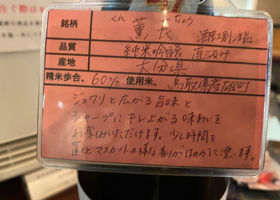 銘柄 薫長
くん ちょう
品質 純米吟醸 直汲み
産地 大分県
精米歩合 60% 使用米 鳥取県産雄町
ジュワリと広がる旨味と
シャープにキレ上がる味わいを
お楽しみいただけます。少し時間を
置くとマスカットの様な香りがほのかに漂います。